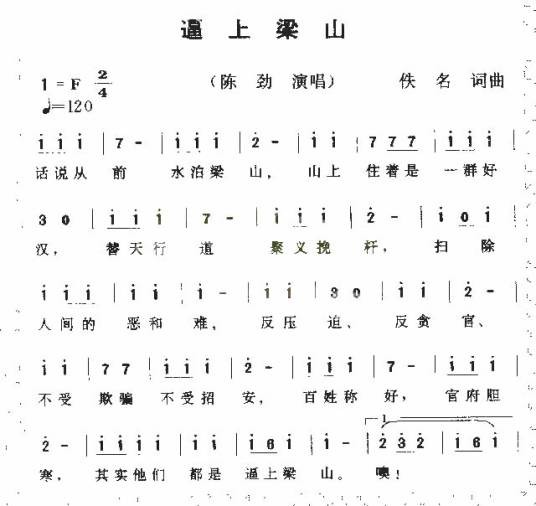 逼上梁山
1=F 2/4 （陈劲 演唱） 佚名 词曲
♩=120
i i i | 7 - | i i i | 2 - | i i | 7 7 7 | i i i
话说从 前 水泊梁 山， 山上 住着是 一群好
3 0 | i i i | 7 - | i i i | 2 - | i 0 i
汉， 替天行 道 聚义挽 杆， 扫 除
i i i | i i | i - | i i | 3 0 | i i | 2 -
人间的 恶和 难， 反压 迫， 反贪 官、
i i | 7 7 | i i i | 2 - | i i i | 7 - | i i i
不受 欺骗 不受招 安， 百姓称 好， 官府胆
1
2 - | i i i i | i i | i 6 i | i - | 2 3 2 | i 6 i
寒， 其实他们 都是 逼上梁 山。 噢！